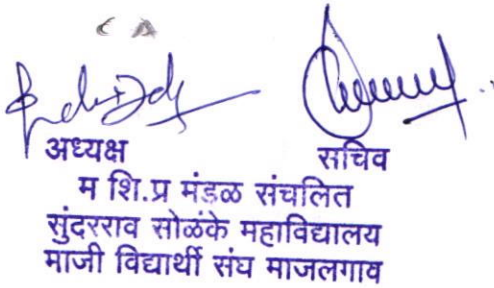 अध्यक्ष सचिव
म शि.प्र मंडळ संचलित
सुंदरराव सोळंके महाविद्यालय
माजी विद्यार्थी संघ माजलगाव